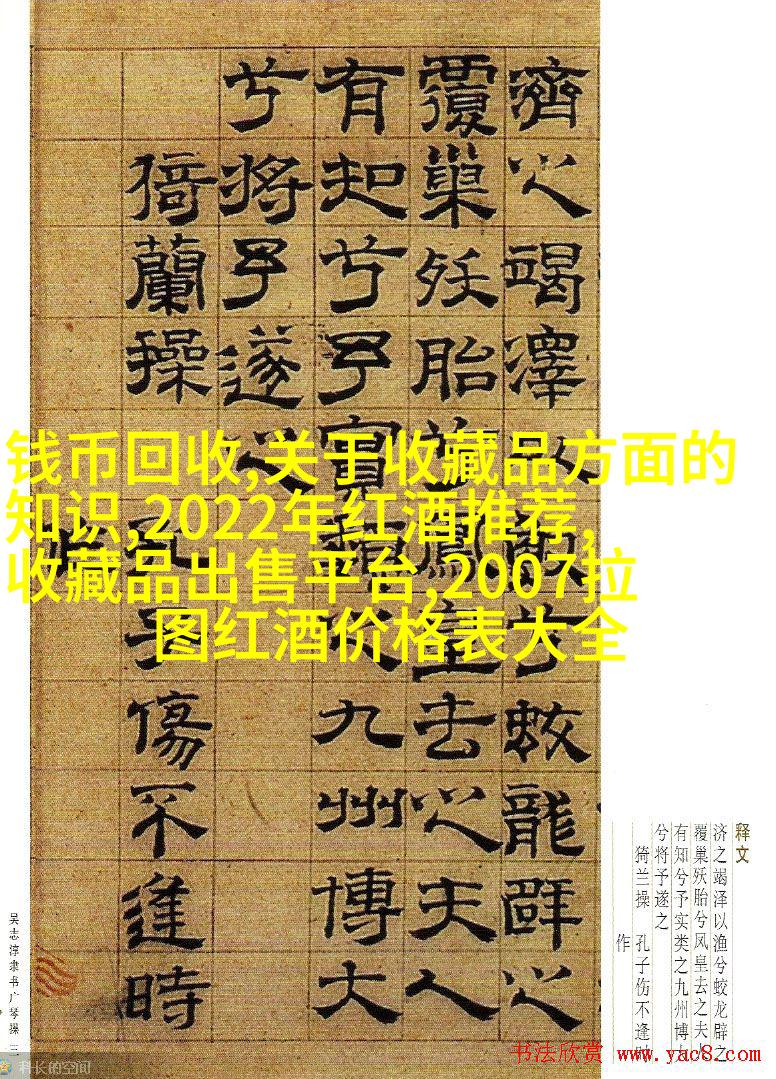 濟之竭澤漁兮蛟龍辟之
覆巢殀胎兮鳳皇去之夫人
有知兮予實類之九州博大
兮將予遂之
猗蘭操 孔子傷不逢時
作
钱币回收,关于收藏品方面的
知识,2022年红酒推荐,
收藏品出售平台,2007拉
图红酒价格表大全
释文
济之竭泽以渔兮蛟龙辟之
覆巢殀胎兮凤皇去之夫
有知兮予实类之九州博
兮将予遂之
猗兰操 孔子伤不逢时
作
吴志淳隶书广琴操 三
科长的空间
书法欣赏 www.yac8.com